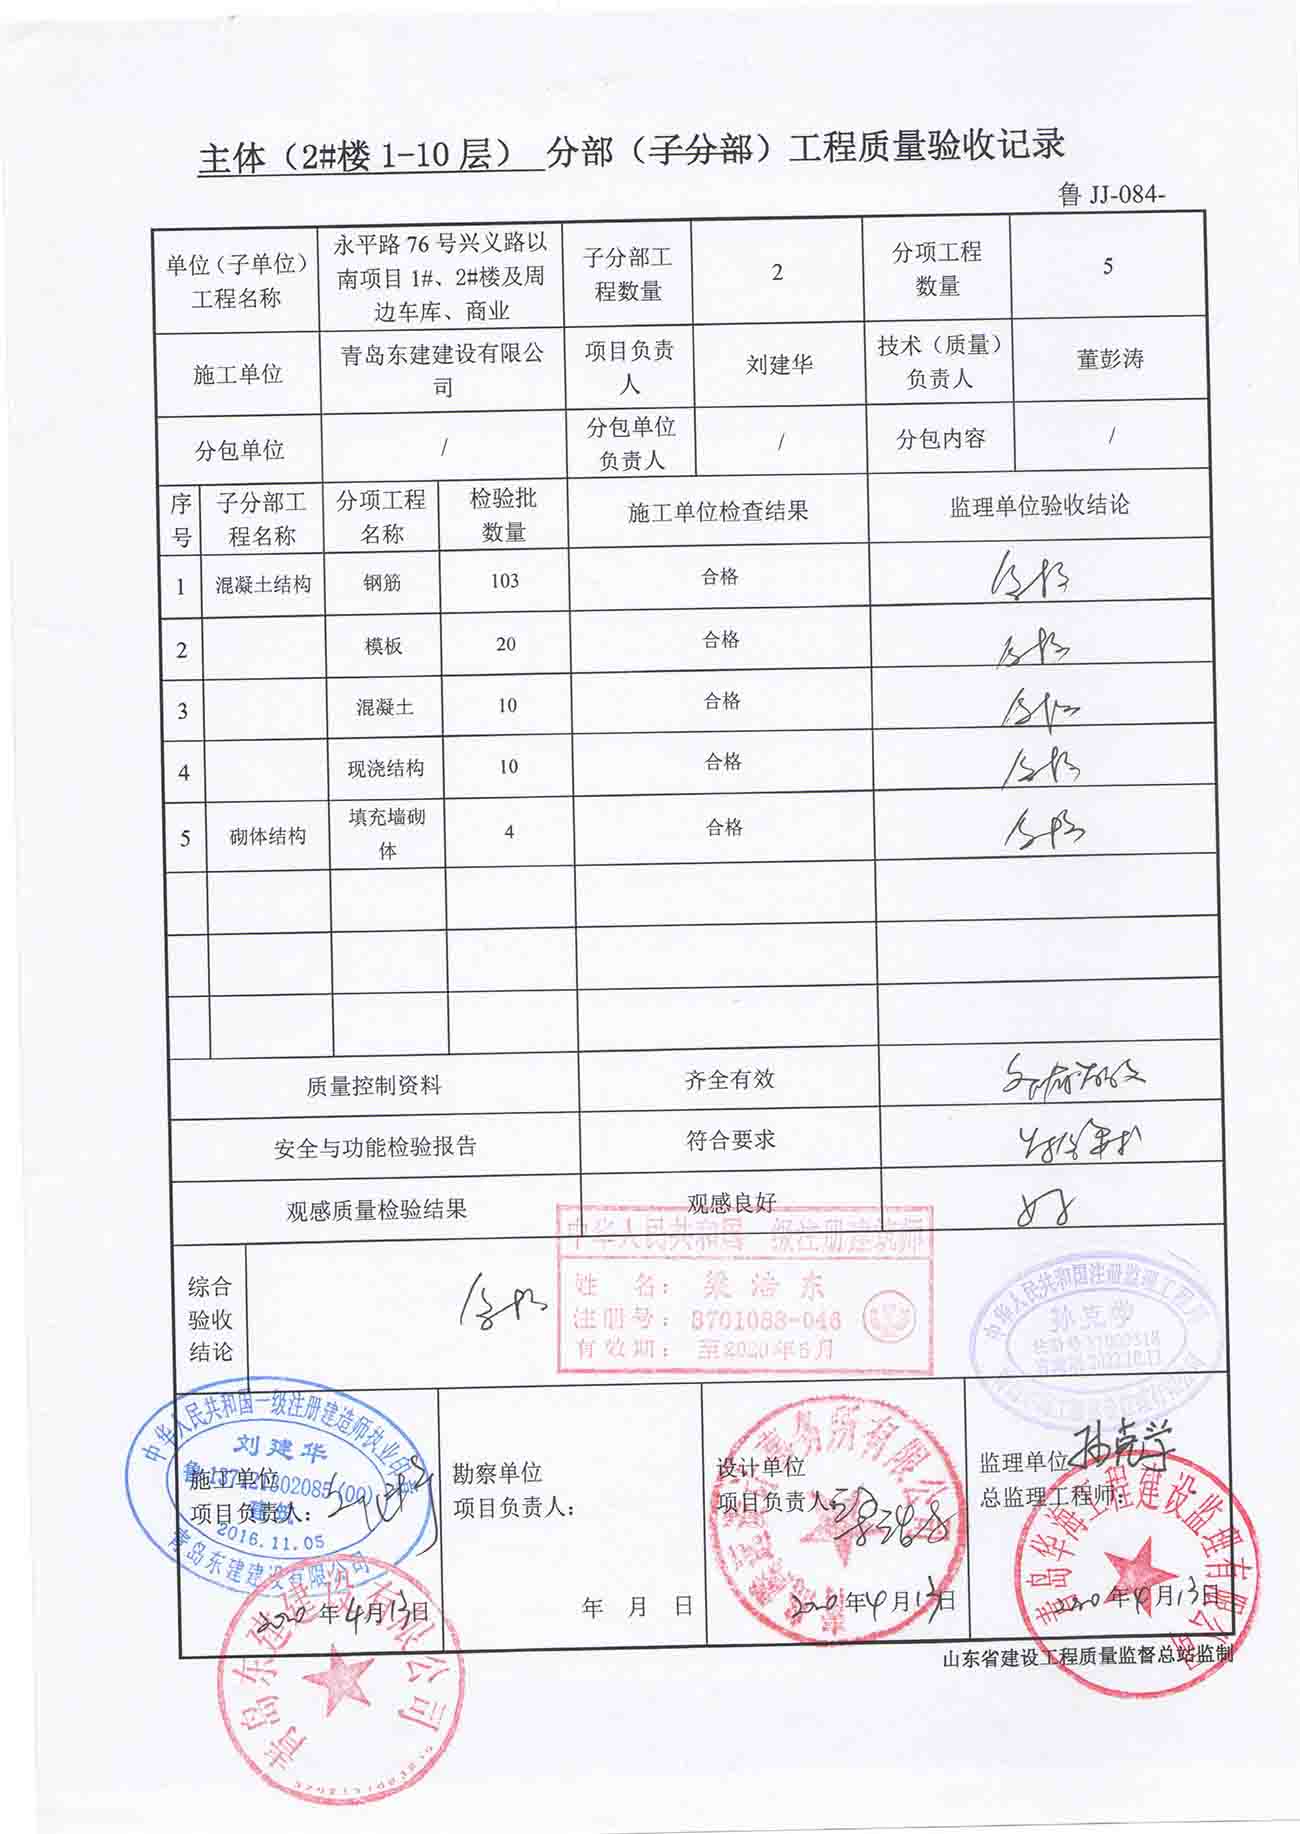 主体（2#楼 1-10 层） 分部（子分部）工程质量验收记录
鲁 JJ-084-
单位（子单位）
工程名称
永平路 76 号兴义路以
南项目 1#、2#楼及周
边车库、商业
子分部工
程数量
2
分项工程
数量
5
施工单位
青岛东建建设有限公
司
项目负责
人
刘建华
技术（质量）
负责人
董彭涛
分包单位
/
分包单位
负责人
/
分包内容
/
序
号
子分部工
程名称
分项工程
名称
检验批
数量
施工单位检查结果
监理单位验收结论
1 混凝土结构 钢筋 103 合格 合格
2 模板 20 合格 合格
3 混凝土 10 合格 合格
4 现浇结构 10 合格 合格
5 砌体结构 填充墙砌
体
4 合格 合格
质量控制资料 齐全有效 齐全有效
安全与功能检验报告 符合要求 符合要求
观感质量检验结果 观感良好 好
综合
验收
结论
合格
中华人民共和国一级注册建筑师
姓 名：梁治东
注册号：3701083-046
有效期：至2020年5月
中华人民共和国注册监理工程师
孙克学
中华人民共和国一级注册建造师执业印章
刘建华
建筑
2016.11.05
青岛东建建设有限公司
施工单位
项目负责人：
2020 年 4 月 13 日
青岛东建建设有限公司
勘察单位
项目负责人：
年 月 日
设计单位
项目负责人：
2020 年 4 月 13 日
监理单位
总监理工程师：
孙克学
2020 年 4 月 13 日
青岛华海工程建设监理有限公司
山东省建设工程质量监督总站监制